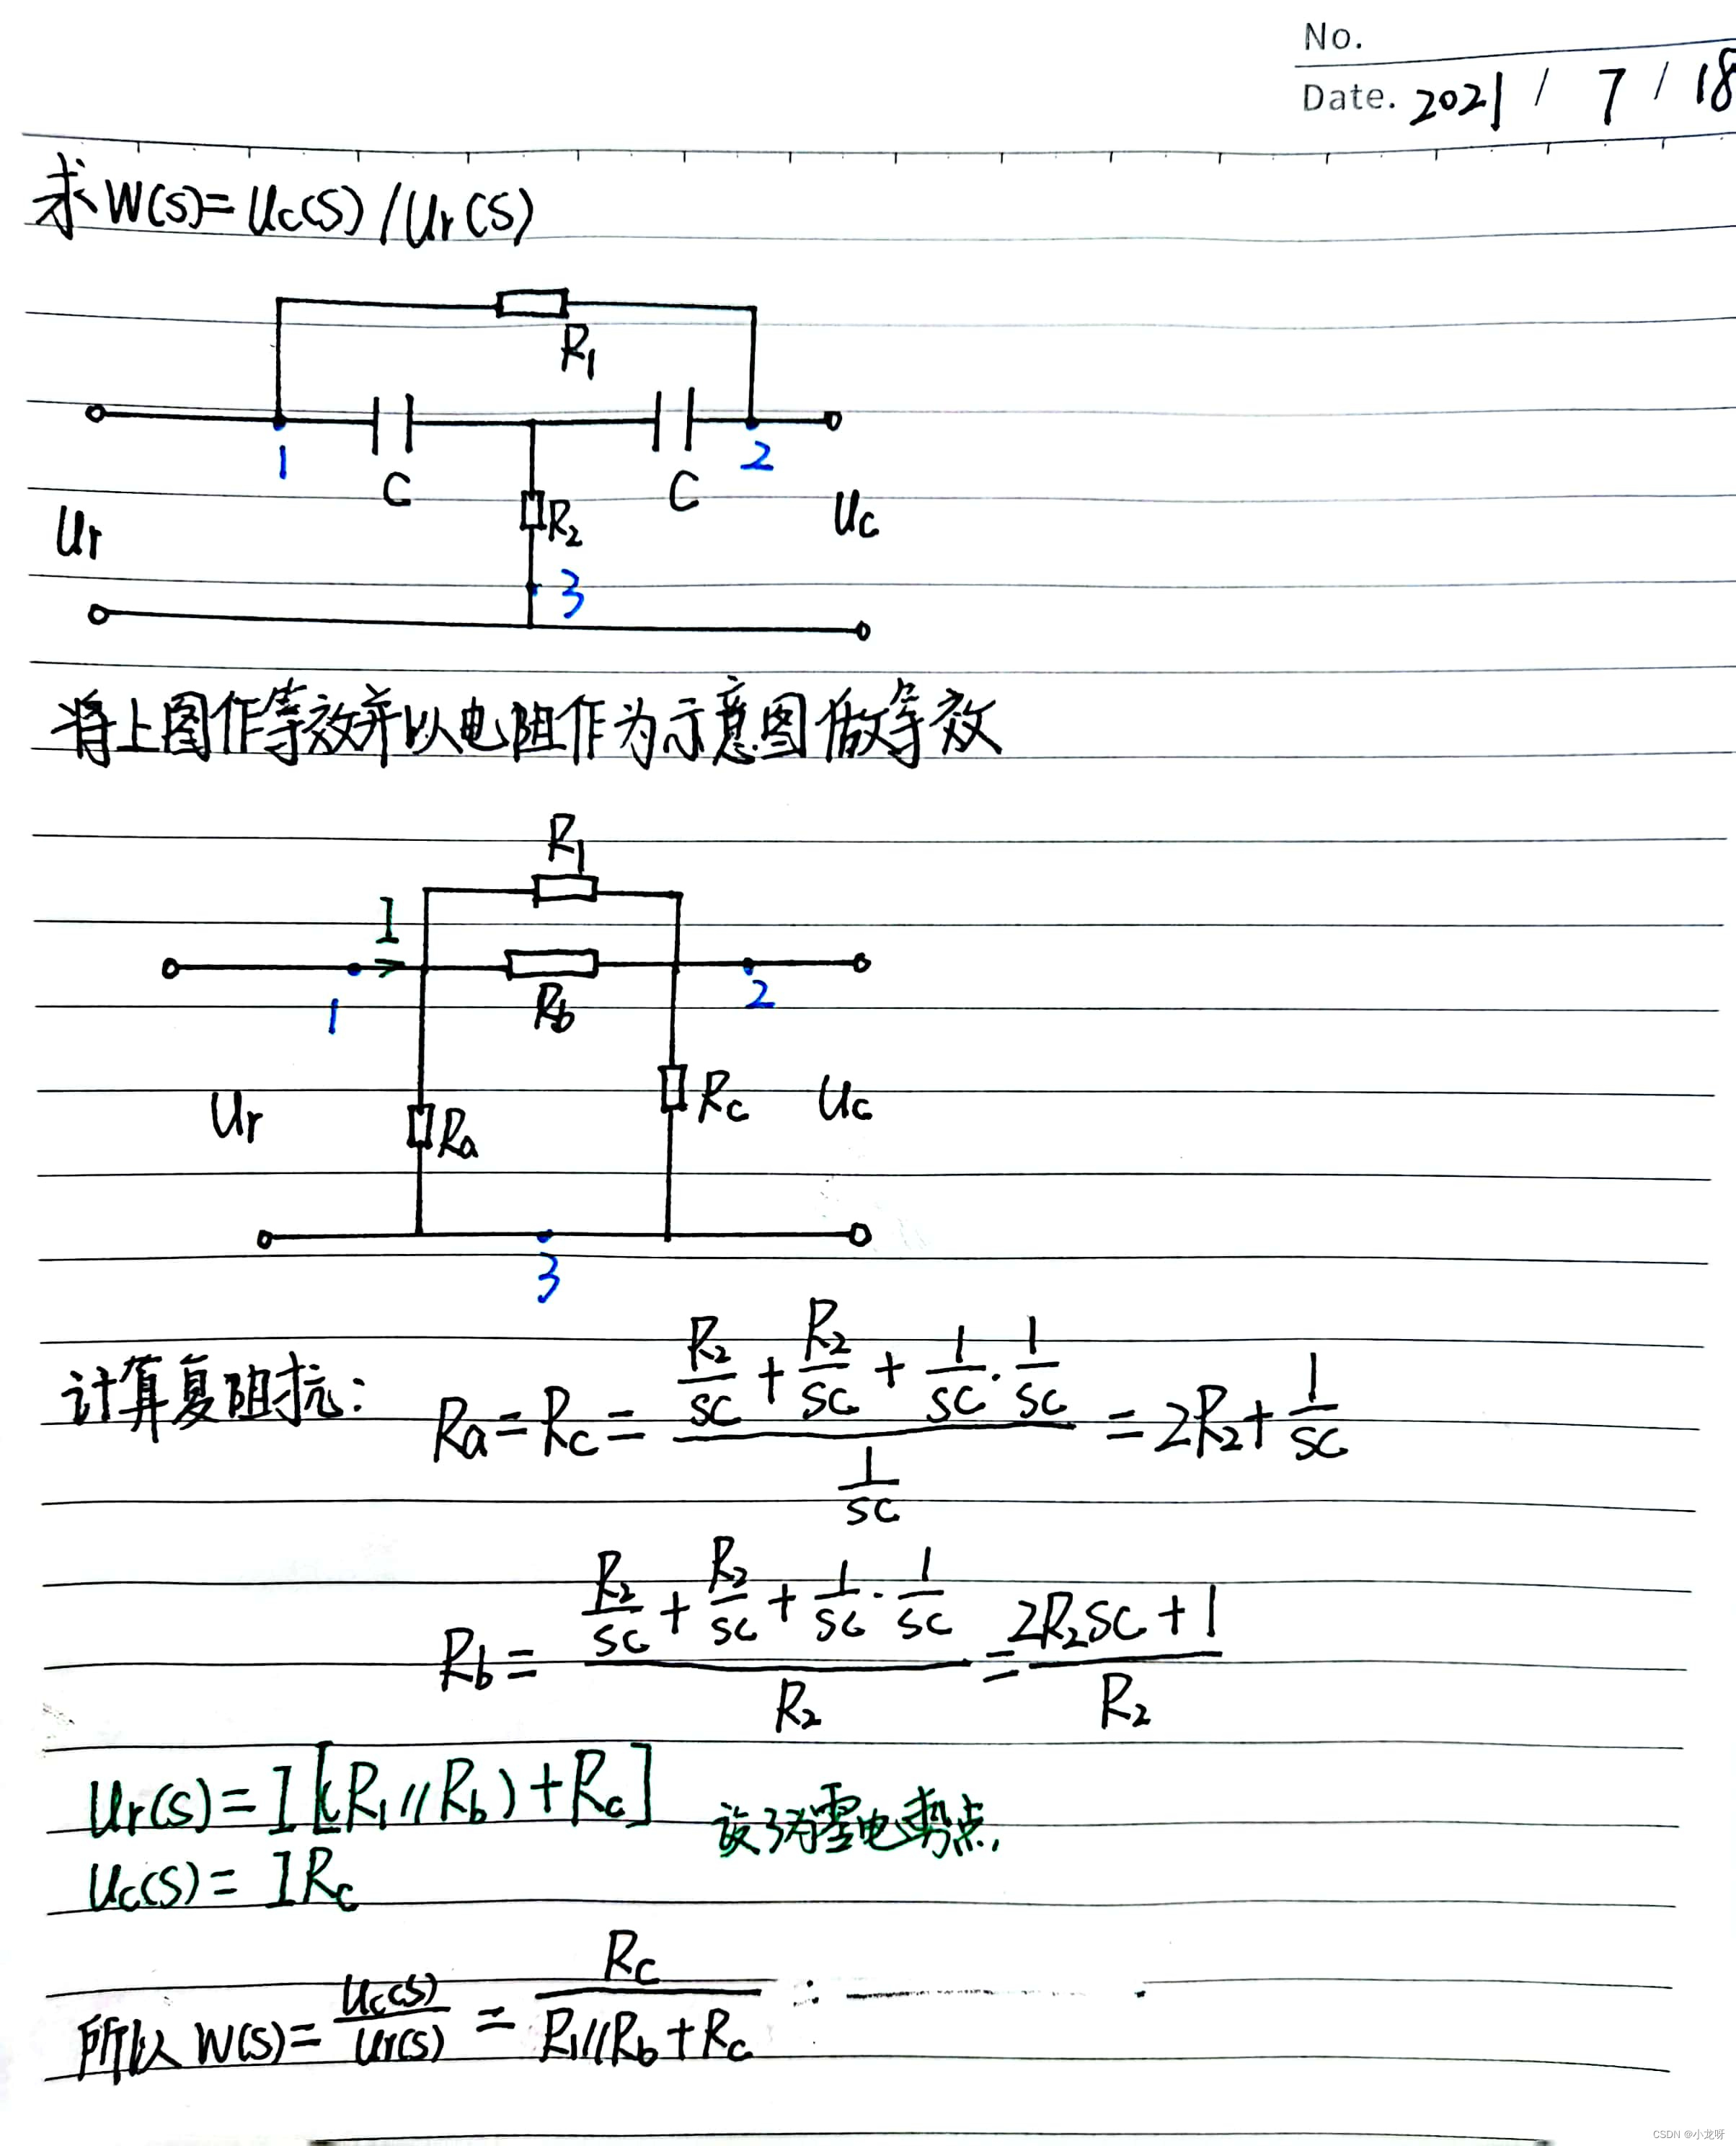 No.
Date. 2021 / 7 / 18
求 W(s)= Uc(s) / Ur(s)
R1
1
2
C
C
R2
Ur
Uc
3
将上图作等效并以电阻作为示意图做等效
R1
I
1
Rb
2
Ur
Ra
Rc
Uc
3
计算复阻抗: Ra = Rc = (R2/sc + R2/sc + 1/sc · 1/sc) / (1/sc) = 2R2 + 1/sc
Rb = (R2/sc + R2/sc + 1/sc · 1/sc) / R2 = (2R2sc + 1) / R2
Ur(s) = I[(R1//Rb) + Rc] 设3为零电势点.
Uc(s) = IRc
所以 W(s) = Uc(s)/Ur(s) = Rc / (R1//Rb + Rc)
CSDN @小龙呀